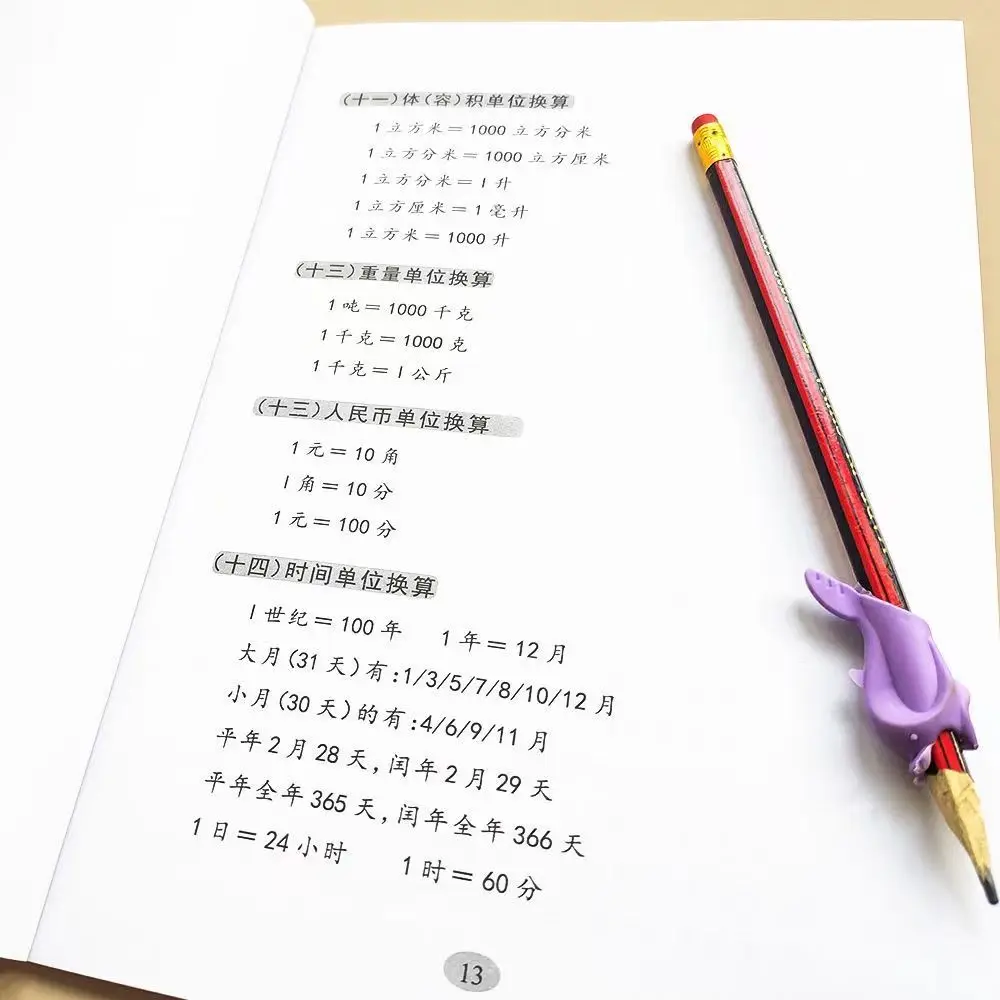 (十一)体(容)积单位换算
1立方米=1000立方分米
1立方分米=1000立方厘米
1立方分米=1升
1立方厘米=1毫升
1立方米=1000升
(十三)重量单位换算
1吨=1000千克
1千克=1000克
1千克=1公斤
(十三)人民币单位换算
1元=10角
1角=10分
1元=100分
(十四)时间单位换算
1世纪=100年 1年=12月
大月(31天)有:1/3/5/7/8/10/12月
小月(30天)的有:4/6/9/11月
平年2月28天,闰年2月29天
平年全年365天,闰年全年366天
1日=24小时 1时=60分
13